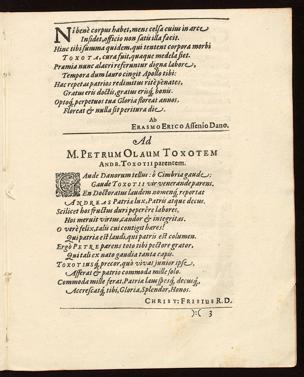 Ni benè corpus habet, mens celsa cuius in arce
Insidet, officio non satis illa facit.
Hinc tibi summa quidem, qui tentent corpora morbi
TOXOTA, cura fuit, quaque medela siet.
Præmia nunc alacri referuntur digna labore,
Tempora dum lauro cingit Apollo tibi:
Hac repetas patrios redimitus ritè penates,
Gratus eris doctis, gratus erisq́; bonis.
Optoq́; perpetuos tua Gloria floreat annos.
Floreat & nulla sit peritura die.
Ab
ERASMO ERICO Assenio Dano.
Ad
M. PETRUM OLAUM TOXOTEM
ANDR. TOXOTII parentem.
Gaude Danorum tellus: ô Cimbria gaude;
Gaude TOXOTII vir venerande parens,
En Doctoratus laudem nomenq́; reportat
ANDREAS Patria lux, Patris atque decus.
Scilicet hos fructus duri peperêre labores,
Hos meruit virtus, candor & integritas.
O verè felix, tali cui contigit hæres!
Qui patria est laudi, qui patris est columen.
Ergò PETRE parens toto tibi pectore grator,
Qui tali ex nato gaudia tanta capis.
TOXOTIUSq́; precor, quò vivas junior ipse,
Afferat & patrio commoda mille solo.
Commoda mille ferat, Patriæ laus spesq́; decusq́;,
Accrescatq́; tibi, Gloria, Splendor, Honos.
CHRIST: FRISIUS R.D.
):( 3